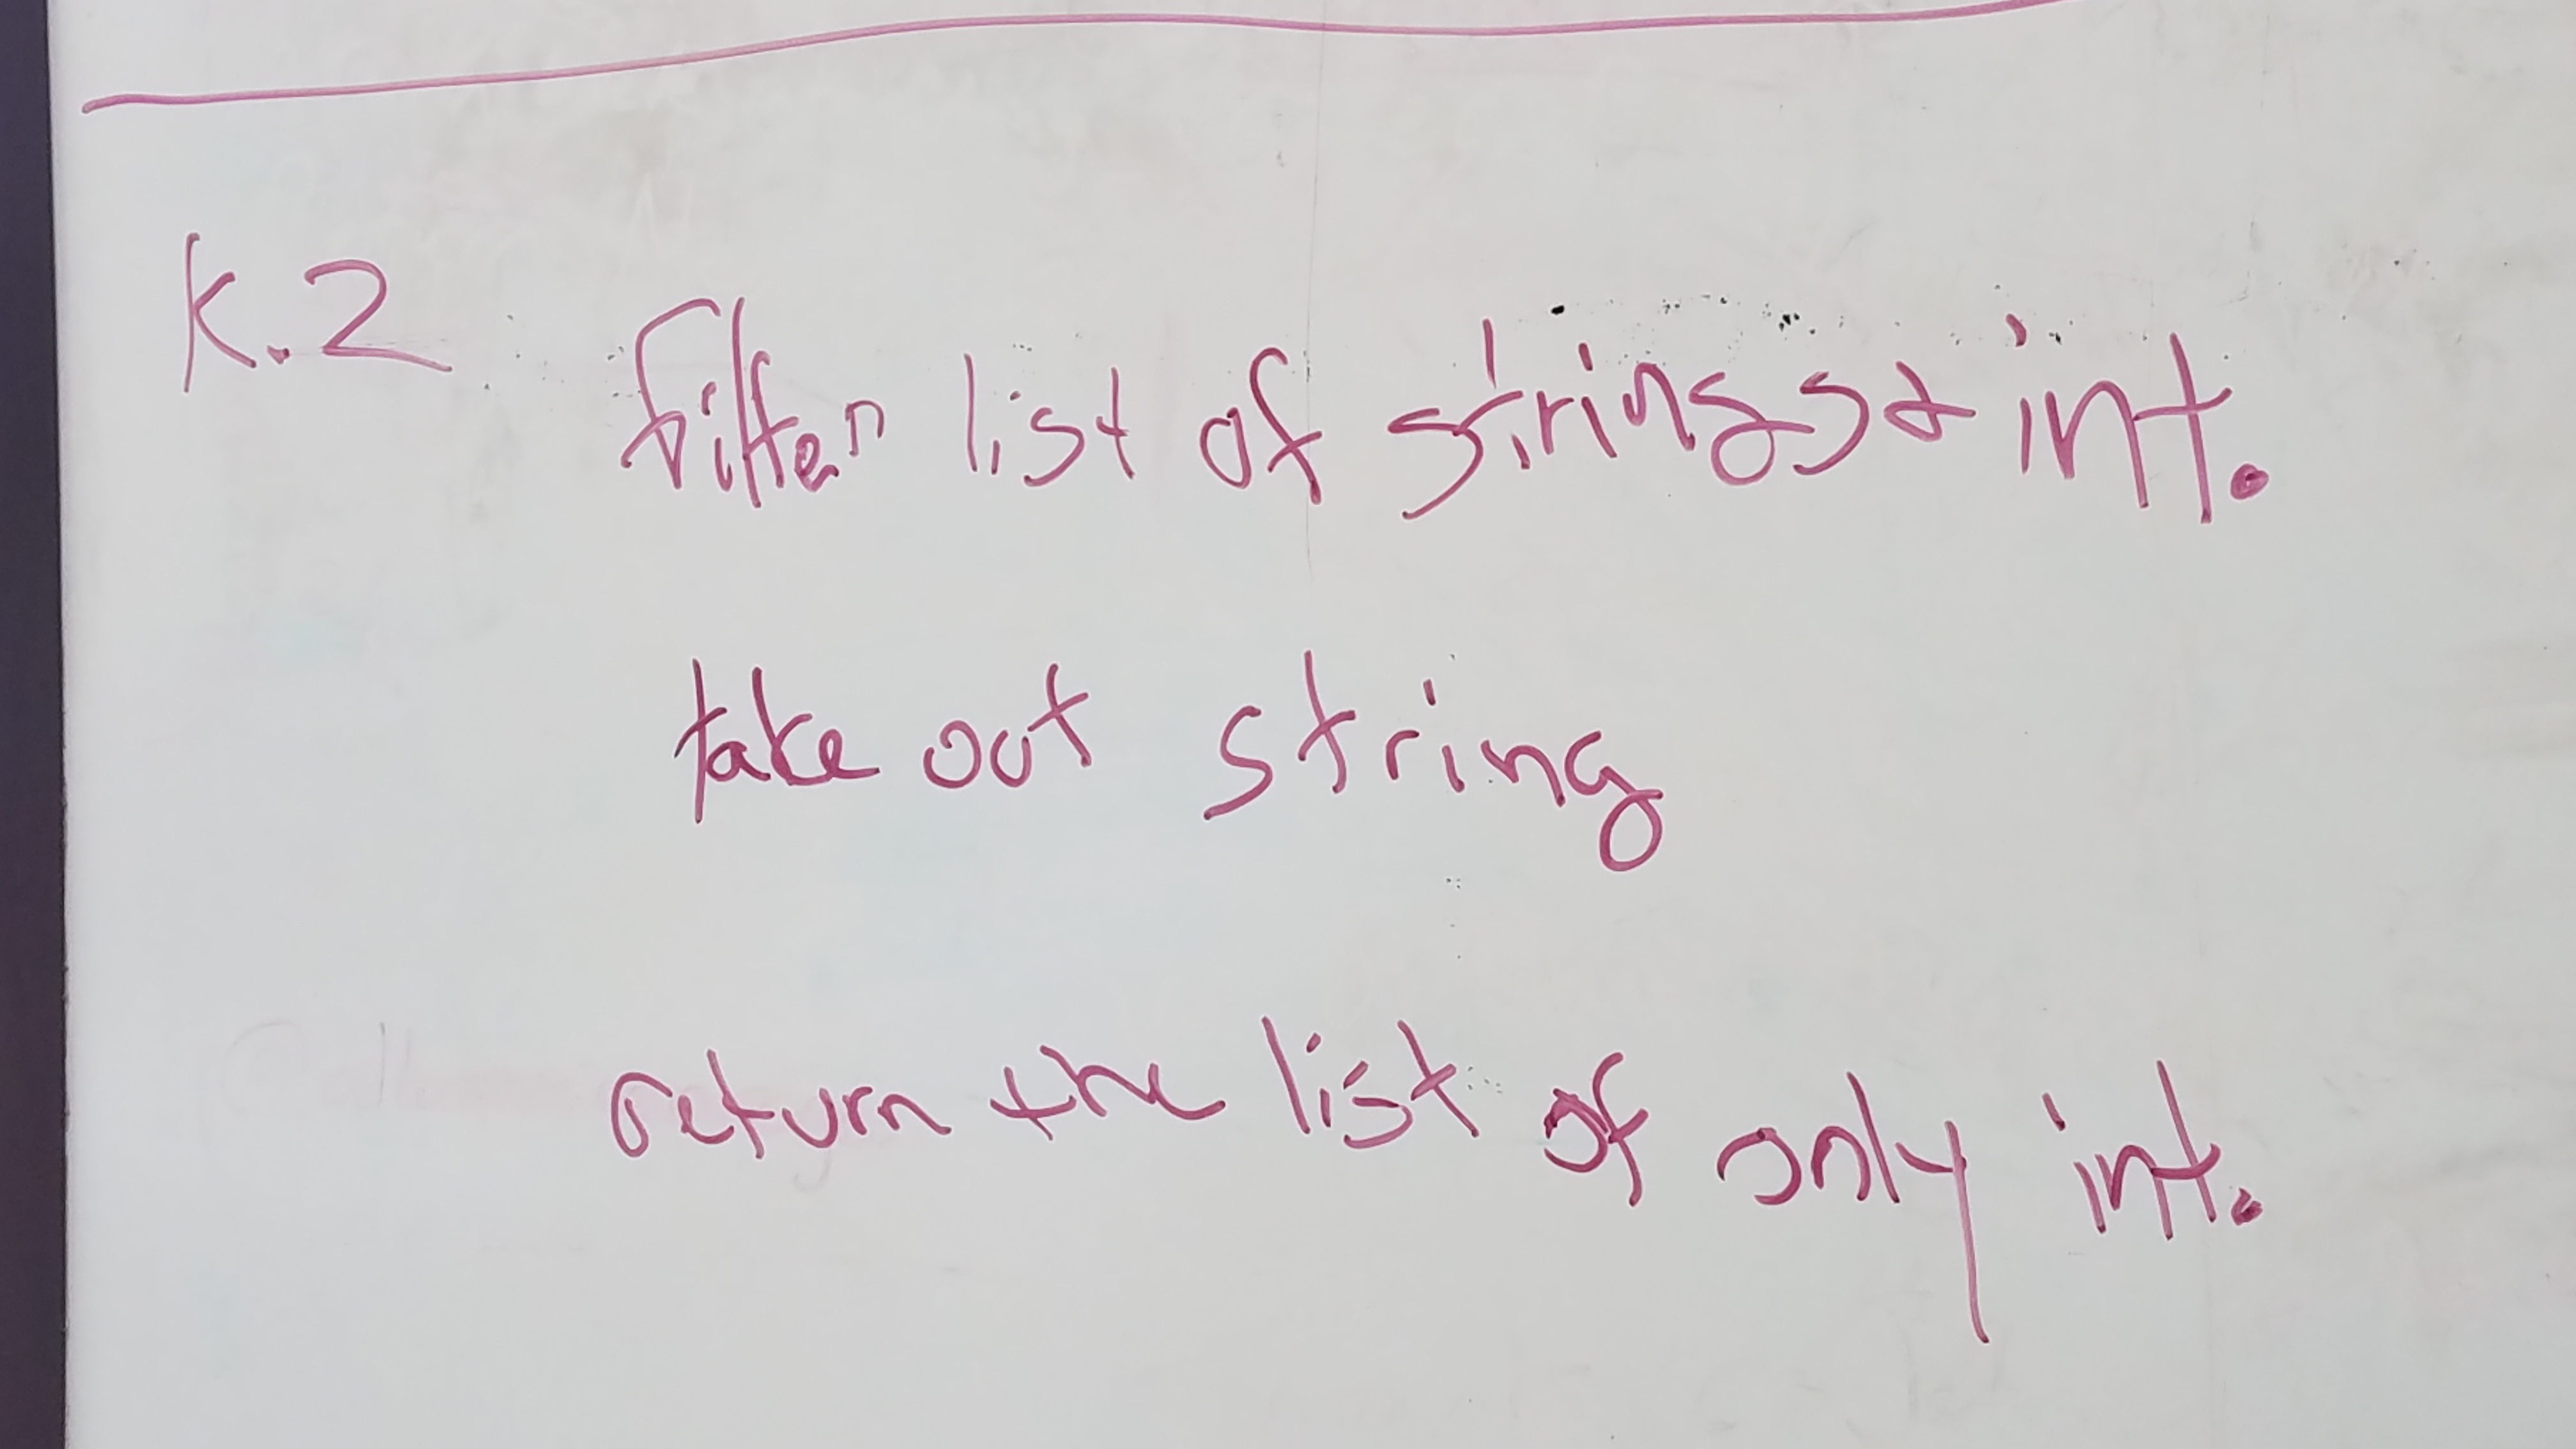 K.2 filter list of strings & int.
take out string
return the list of only int.